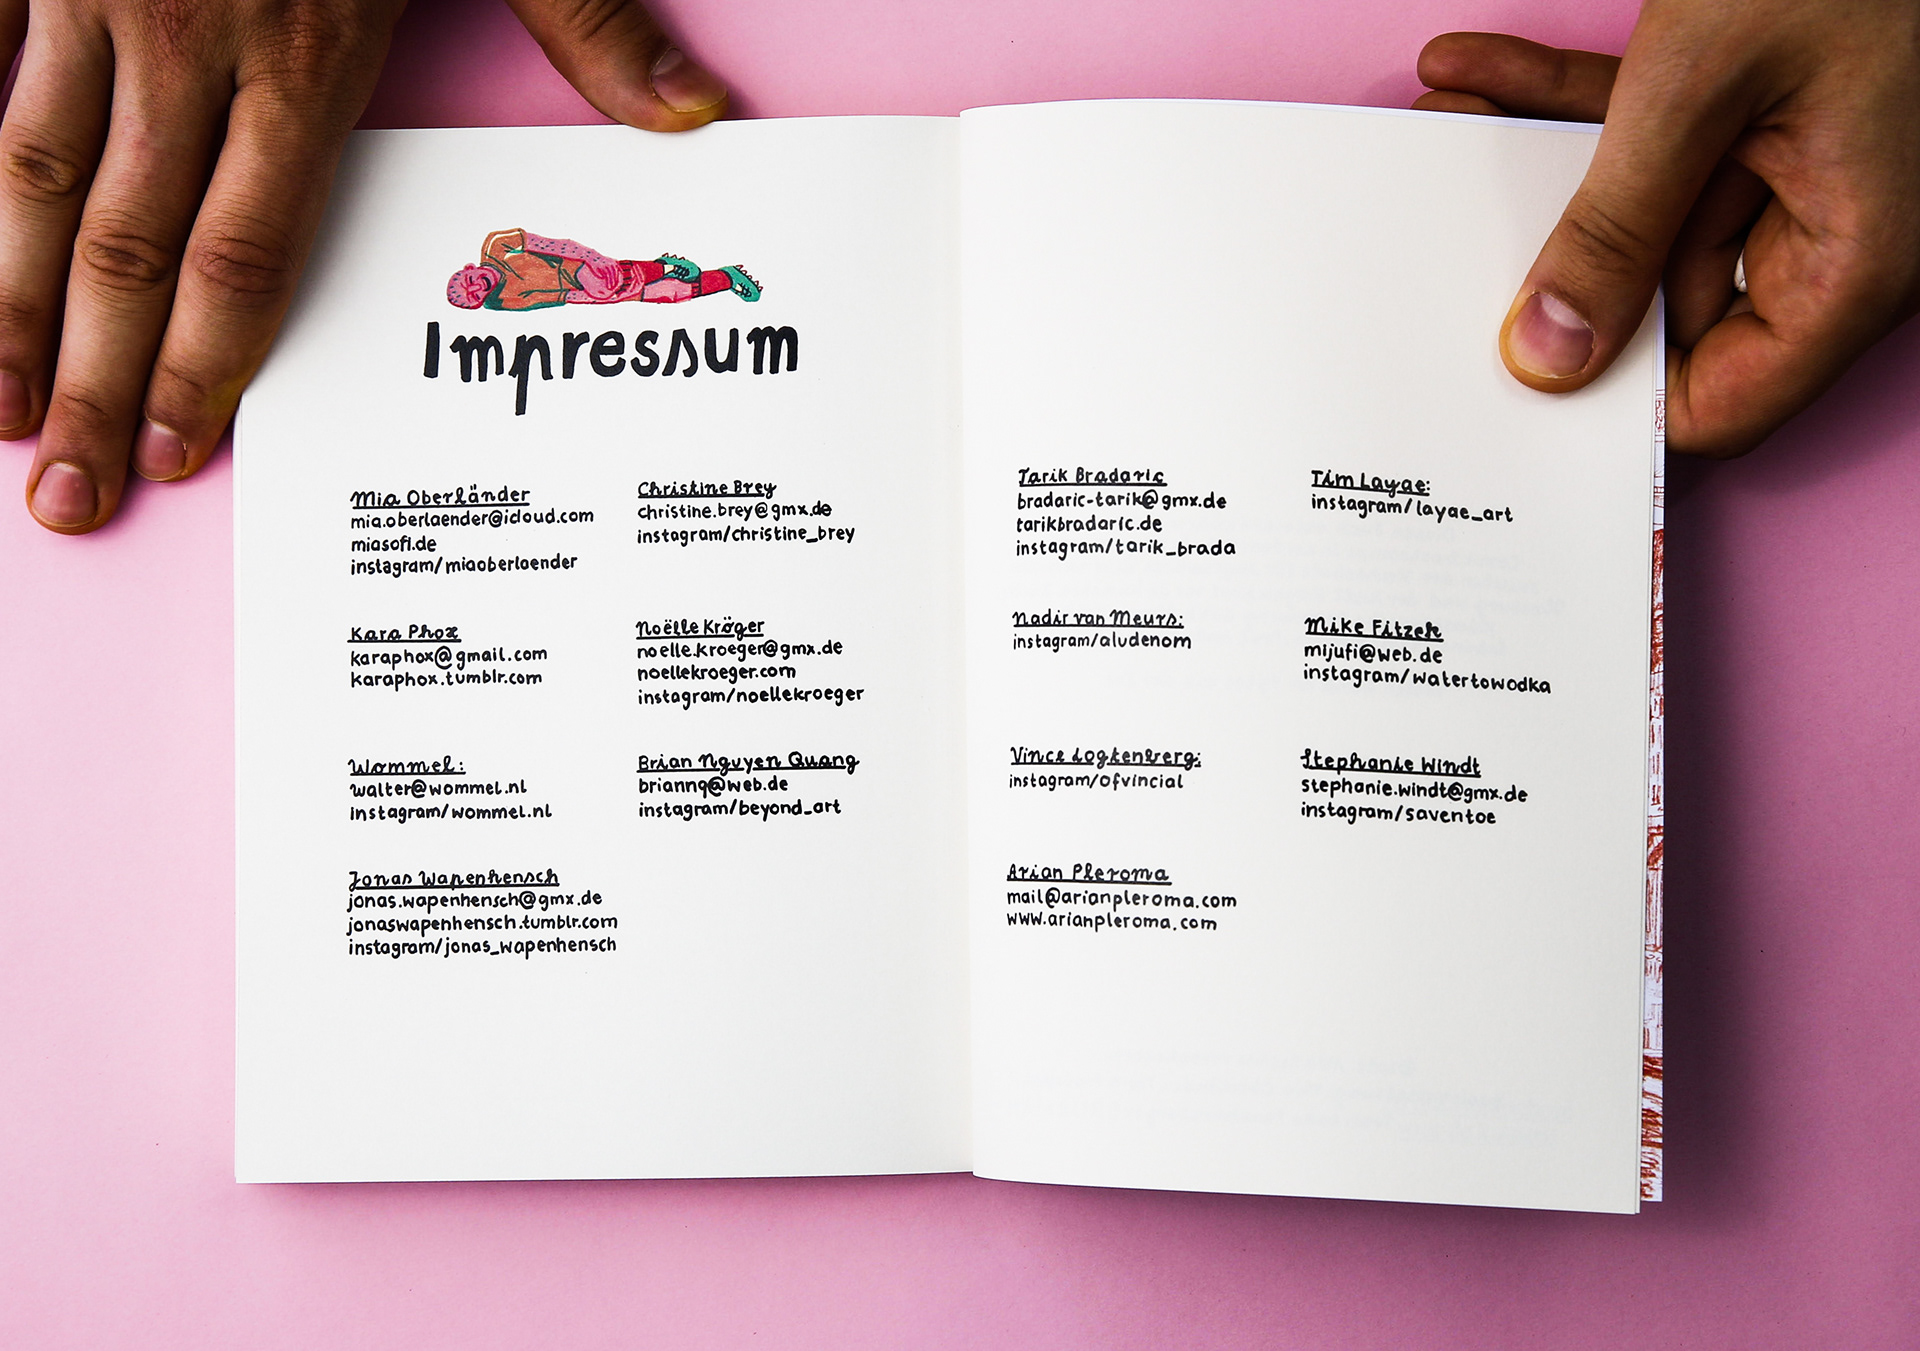 Impressum
Mia Oberländer
mia.oberlaender@icloud.com
miasofi.de
instagram/miaoberlaender
Christine Brey
christine.brey@gmx.de
instagram/christine_brey
Kara Phox
karaphox@gmail.com
karaphox.tumblr.com
Noëlle Kröger
noelle.kroeger@gmx.de
noellekroeger.com
instagram/noellekroeger
Wommel:
walter@wommel.nl
instagram/wommel.nl
Brian Nguyen Quang
briannq@web.de
instagram/beyond_art
Jonas Wapenhensch
jonas.wapenhensch@gmx.de
jonaswapenhensch.tumblr.com
instagram/jonas_wapenhensch
Tarik Bradaric
bradaric-tarik@gmx.de
tarikbradaric.de
instagram/tarik_brada
Tim Layae:
instagram/layae_art
Nadir van Meurs:
instagram/aludenom
Mike Fitzek
mijufi@web.de
instagram/watertowodka
Vince Logtenberg:
instagram/ofvincial
Stephanie Windt
stephanie.windt@gmx.de
instagram/saventoe
Arian Pleroma
mail@arianpleroma.com
www.arianpleroma.com